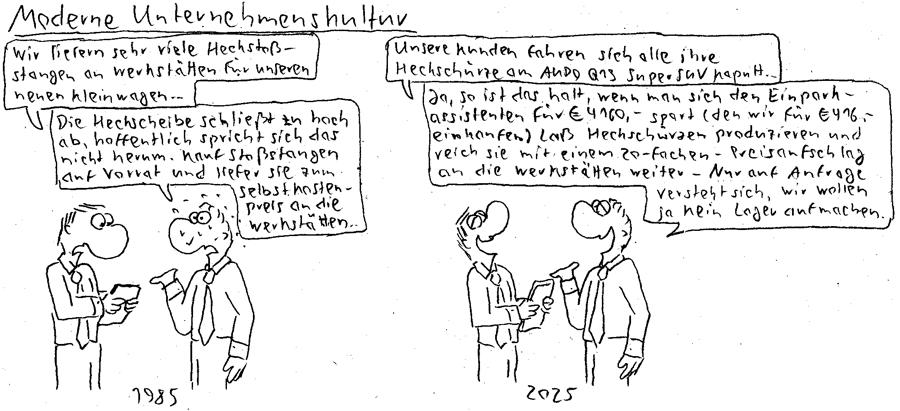 Moderne Unternehmenskultur
Wir liefern sehr viele Heckstoß-
stangen an Werkstätten für unseren
neuen Kleinwagen...
Die Heckscheibe schließt zu hoch
ab, hoffentlich spricht sich das
nicht herum. Kauf Stoßstangen
auf Vorrat und liefer sie zum
Selbstkosten-
preis an die
Werkstätten...
1985
Unsere Kunden fahren sich alle ihre
Heckschürze am AUDO Q13 SuperSUV kaputt...
Ja, so ist das halt, wenn man sich den Einpark-
assistenten für €4160,- spart (den wir für €416,-
einkaufen) Laß Heckschürzen produzieren und
reich sie mit einem 20-fachen-Preisaufschlag
an die Werkstätten weiter - Nur auf Anfrage
versteht sich, wir wollen
ja kein Lager aufmachen.
2025